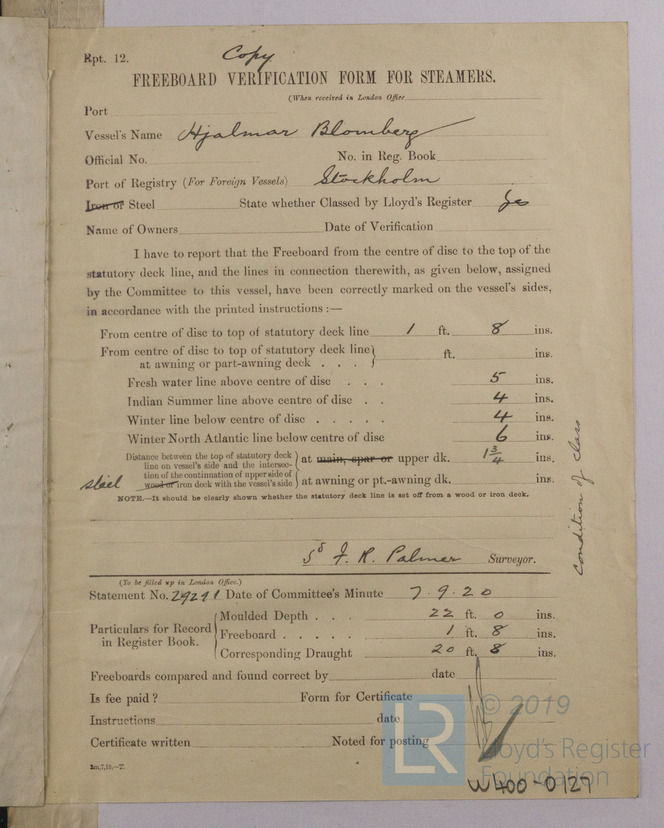 Rpt. 12.
Copy
FREEBOARD VERIFICATION FORM FOR STEAMERS.
(When received in London Office
Port
Vessel's Name Hjalmar Blomberg
Official No. No. in Reg. Book
Port of Registry (For Foreign Vessels) Stockholm
Iron or Steel State whether Classed by Lloyd's Register Yes
Name of Owners Date of Verification
I have to report that the Freeboard from the centre of disc to the top of the
statutory deck line, and the lines in connection therewith, as given below, assigned
by the Committee to this vessel, have been correctly marked on the vessel's sides,
in accordance with the printed instructions :—
From centre of disc to top of statutory deck line 1 ft. 8 ins.
From centre of disc to top of statutory deck line
at awning or part-awning deck . . . ft. ins.
Fresh water line above centre of disc . . . 5 ins.
Indian Summer line above centre of disc . . 4 ins.
Winter line below centre of disc . . . . . 4 ins.
Winter North Atlantic line below centre of disc 6 ins.
Distance between the top of statutory deck
line on vessel's side and the intersec-
tion of the continuation of upper side of
wood or iron deck with the vessel's side
steel
at main, spar or upper dk. 1 3/4 ins.
at awning or pt.-awning dk. ins.
NOTE.—It should be clearly shown whether the statutory deck line is set off from a wood or iron deck.
Condition of class
sd J. R. Palmer Surveyor.
(To be filled up in London Office.)
Statement No. 29291 Date of Committee's Minute 7.9.20
Particulars for Record
in Register Book.
Moulded Depth . . . 22 ft. 0 ins.
Freeboard . . . . . 1 ft. 8 ins.
Corresponding Draught 20 ft. 8 ins.
Freeboards compared and found correct by date
Is fee paid ? Form for Certificate
Instructions date
Certificate written Noted for posting
3m,7,19,—T.
LR
© 2019
Lloyd's Register
Foundation
W400-0129